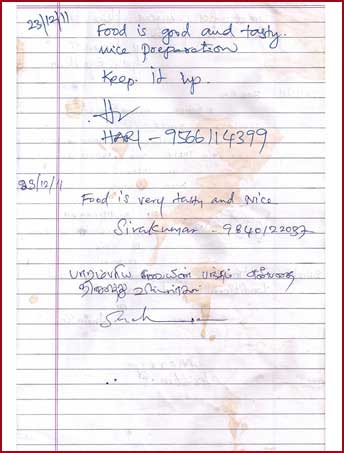 23/12/11
Food is good and tasty.
nice preparation
Keep it up.
HARI - 9566114399
23/12/11
Food is very tasty and Nice
Sivakumar - 9840122037
பாரம்பரிய